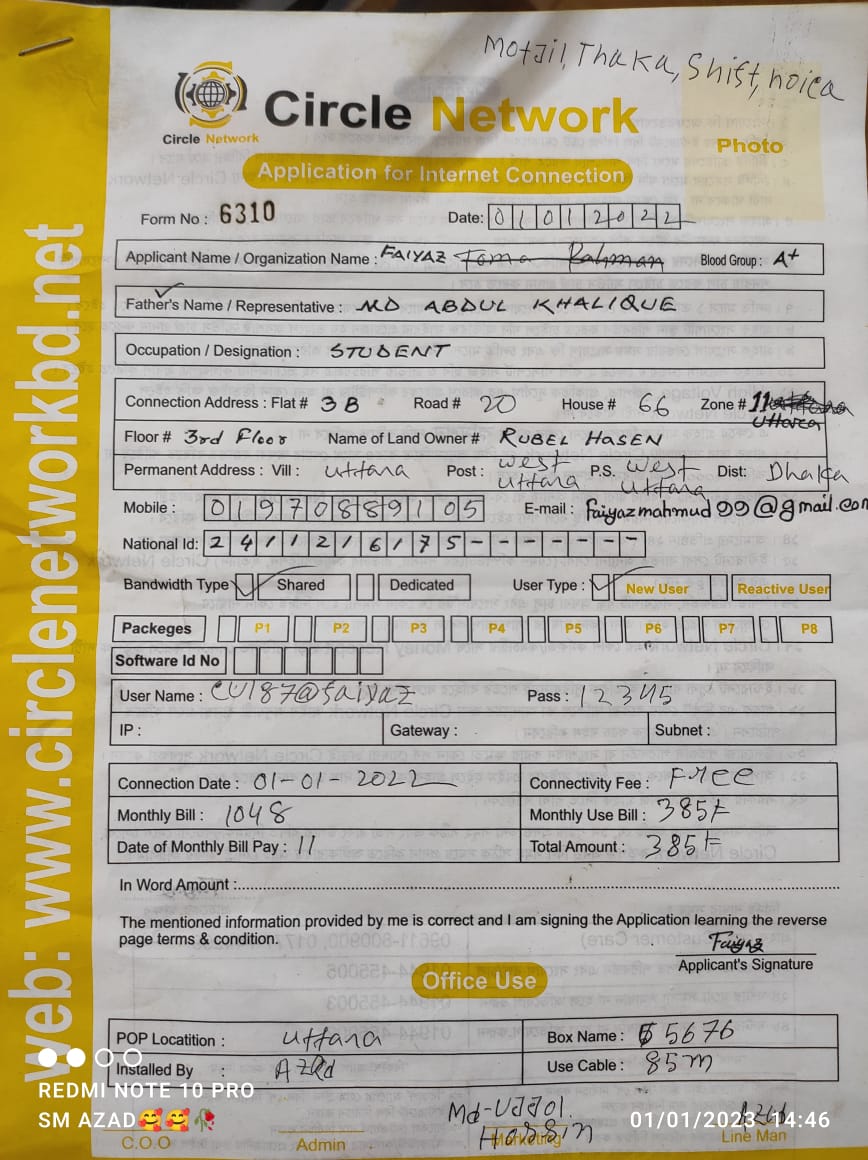 Motjil, Thaka, Shift, noica
Circle Network
Circle Network
Photo
Application for Internet Connection
Form No : 6310 Date: 01012022
Applicant Name / Organization Name : FAIYAZ Toma Rahman Blood Group : A+
Father's Name / Representative : MD ABDUL KHALIQUE
Occupation / Designation : STUDENT
Connection Address : Flat # 3B Road # 20 House # 66 Zone # 11
Uttara
Floor # 3rd Floor Name of Land Owner # RUBEL HASEN
Permanent Address : Vill : uttara Post : west uttara P.S. west uttara Dist: Dhaka
Mobile : 01970889105 E-mail : faiyazmahmud99@gmail.com
National Id: 2411216175-------
Bandwidth Type Shared Dedicated User Type : New User Reactive User
Packeges P1 P2 P3 P4 P5 P6 P7 P8
Software Id No
User Name : CU187@faiyaz Pass : 12345
IP : Gateway : Subnet :
Connection Date : 01-01-2022 Connectivity Fee : Free
Monthly Bill : 1048 Monthly Use Bill : 385/=
Date of Monthly Bill Pay : 11 Total Amount : 385/=
In Word Amount :
The mentioned information provided by me is correct and I am signing the Application learning the reverse
page terms & condition.
Faiyaz
Applicant's Signature
Office Use
POP Locatition : uttara Box Name : 5676
Installed By : AZAd Use Cable : 85m
Md-UJJOl.
Hossin AZad
C.O.O Admin Marketing Line Man
web: www.circlenetworkbd.net
REDMI NOTE 10 PRO
SM AZAD🥰🥰🥀 01/01/2023 14:46